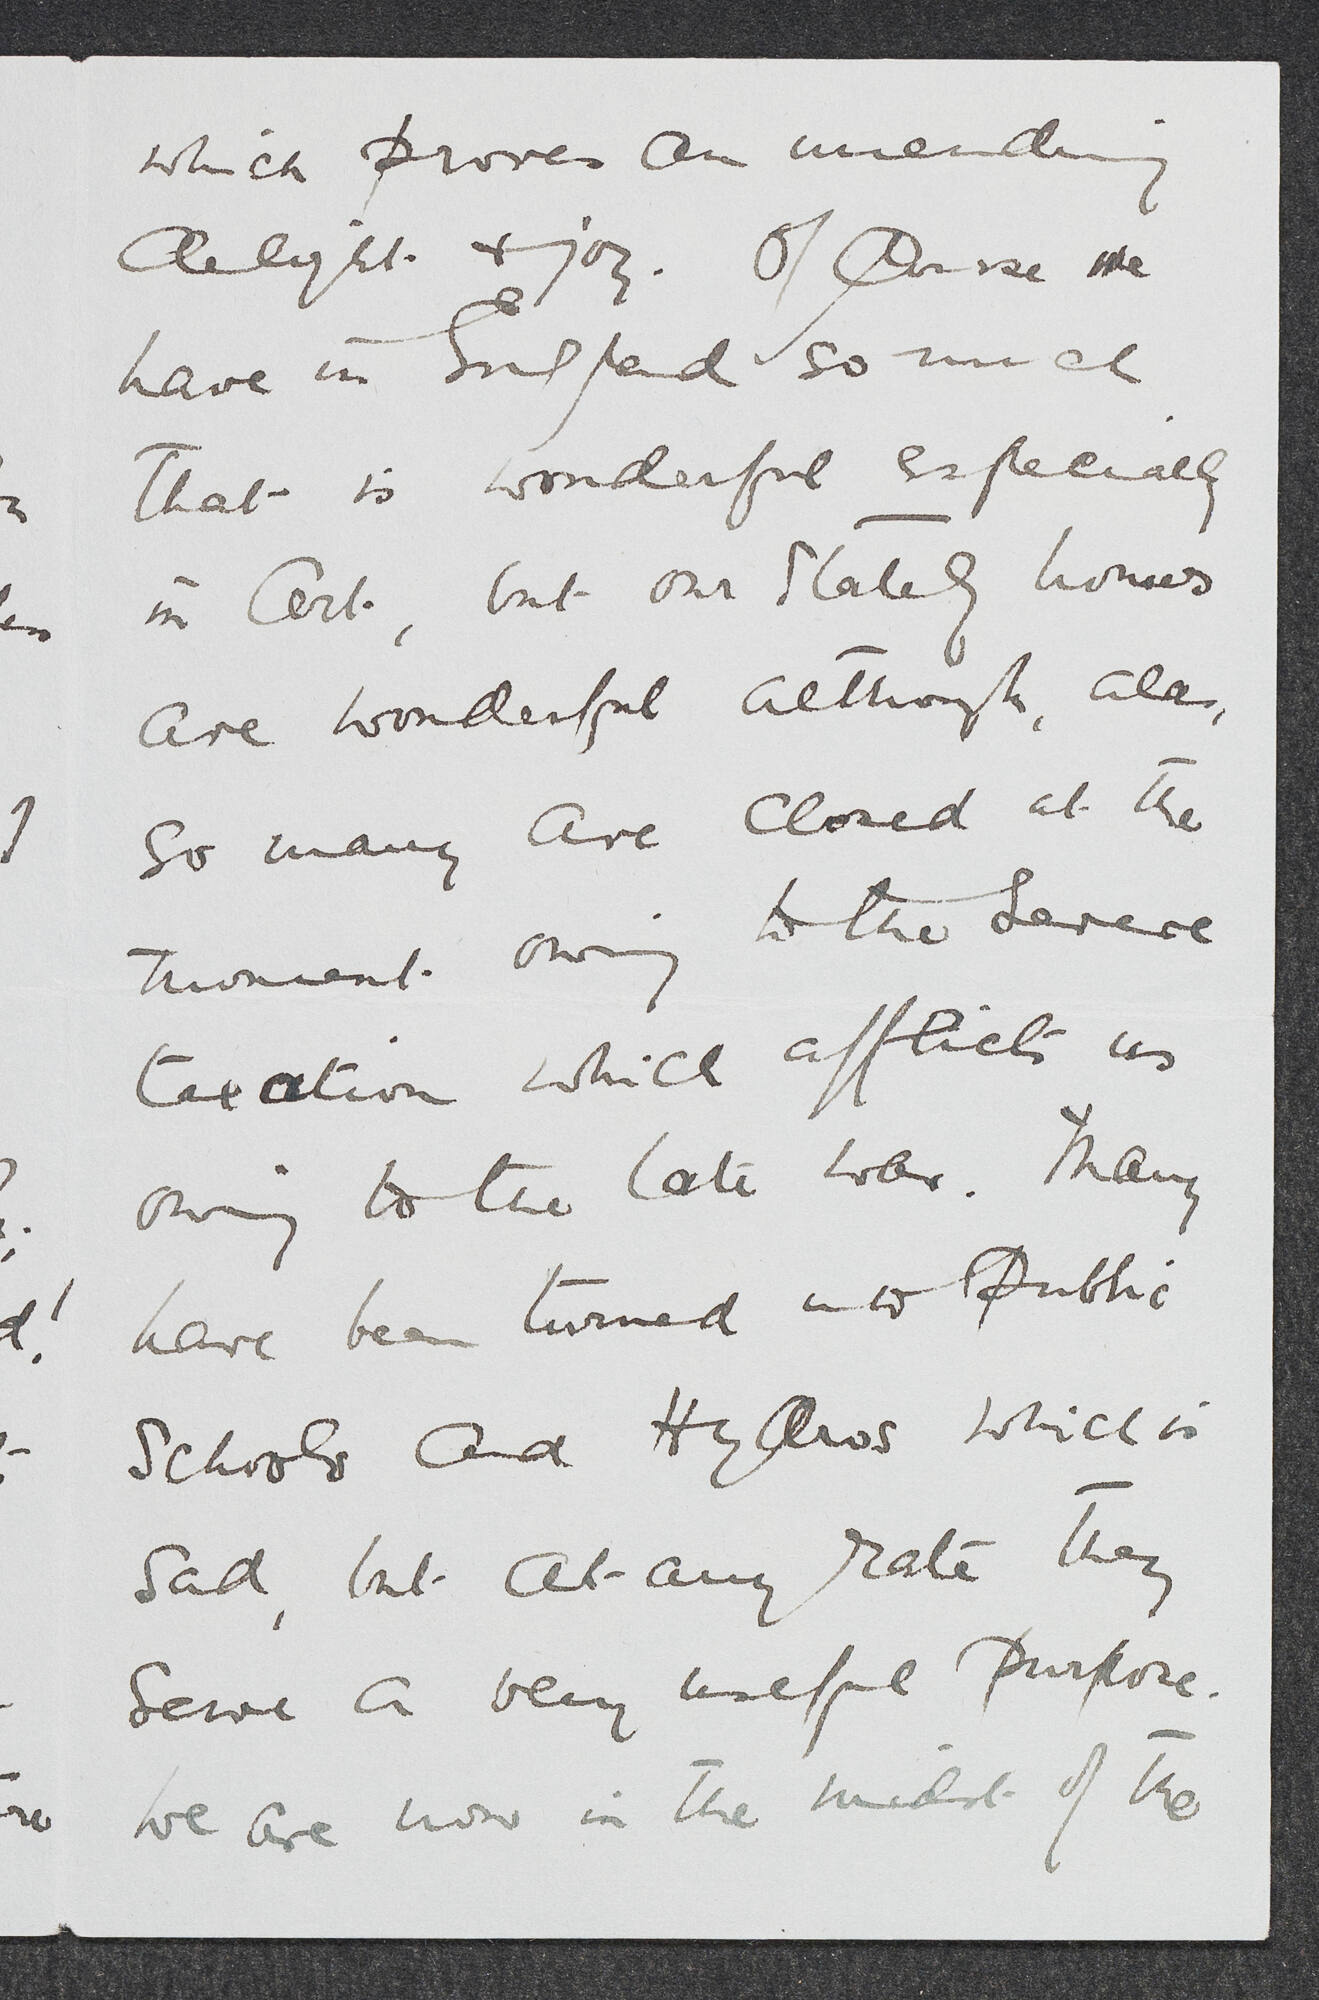 which proves an unending
delight & joy. Of Course we
have in England so much
that is wonderful especially
in Art, but our Stately homes
are wonderful although, alas,
so many are Closed at the
moment owing to the Severe
taxation which afflicts us
owing to the late war. Many
have been turned into Public
Schools and Hydros which is
Sad, but at any rate they
Serve a very useful purpose.
We are now in the midst of the